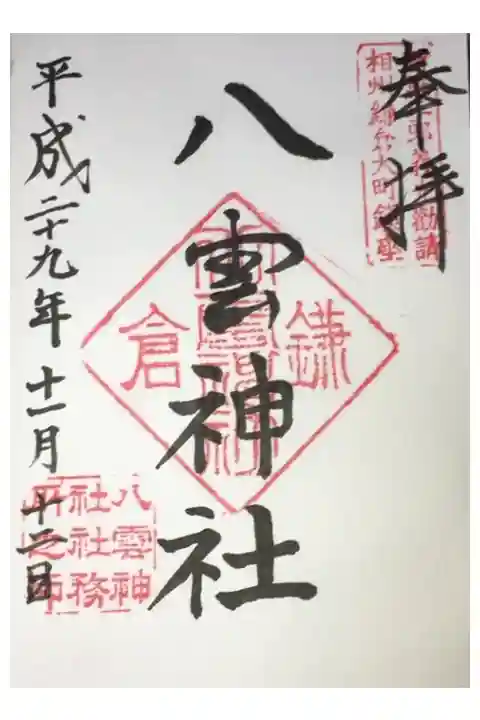 奉拝
相州鎌倉大町鎮座
八雲神社
鎌倉
平成二十九年十一月十二日
八雲神
社社務
所之印